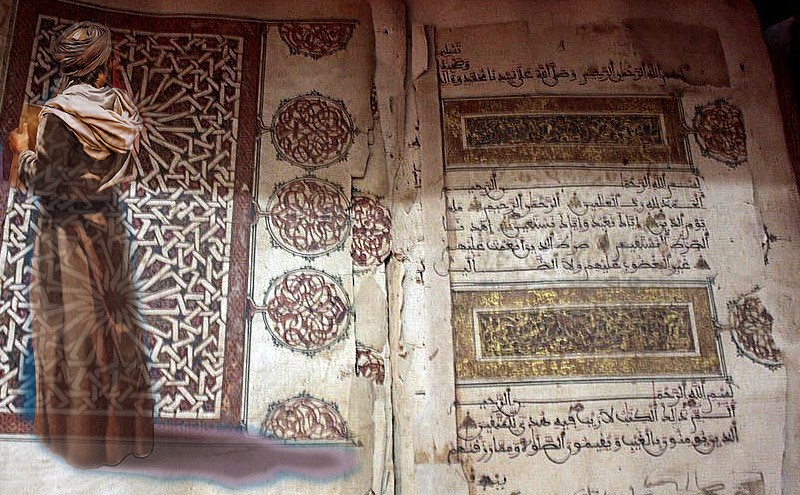 بسم الله الرحمن الرحيم وصلى الله على سيدنا محمد وآله
بسم الله الرحمن الرحيم
الحمد لله رب العلمين الرحمن الرحيم ملك
يوم الدين إياك نعبد وإياك نستعين اهدنا
الصرط المستقيم صرط الذين أنعمت عليهم
غير المغضوب عليهم ولا الضالين
بسم الله الرحمن الرحيم
الم ذلك الكتب لا ريب فيه هدى للمتقين
الذين يومنون بالغيب ويقيمون الصلوة ومما رزقنهم
ينفقو